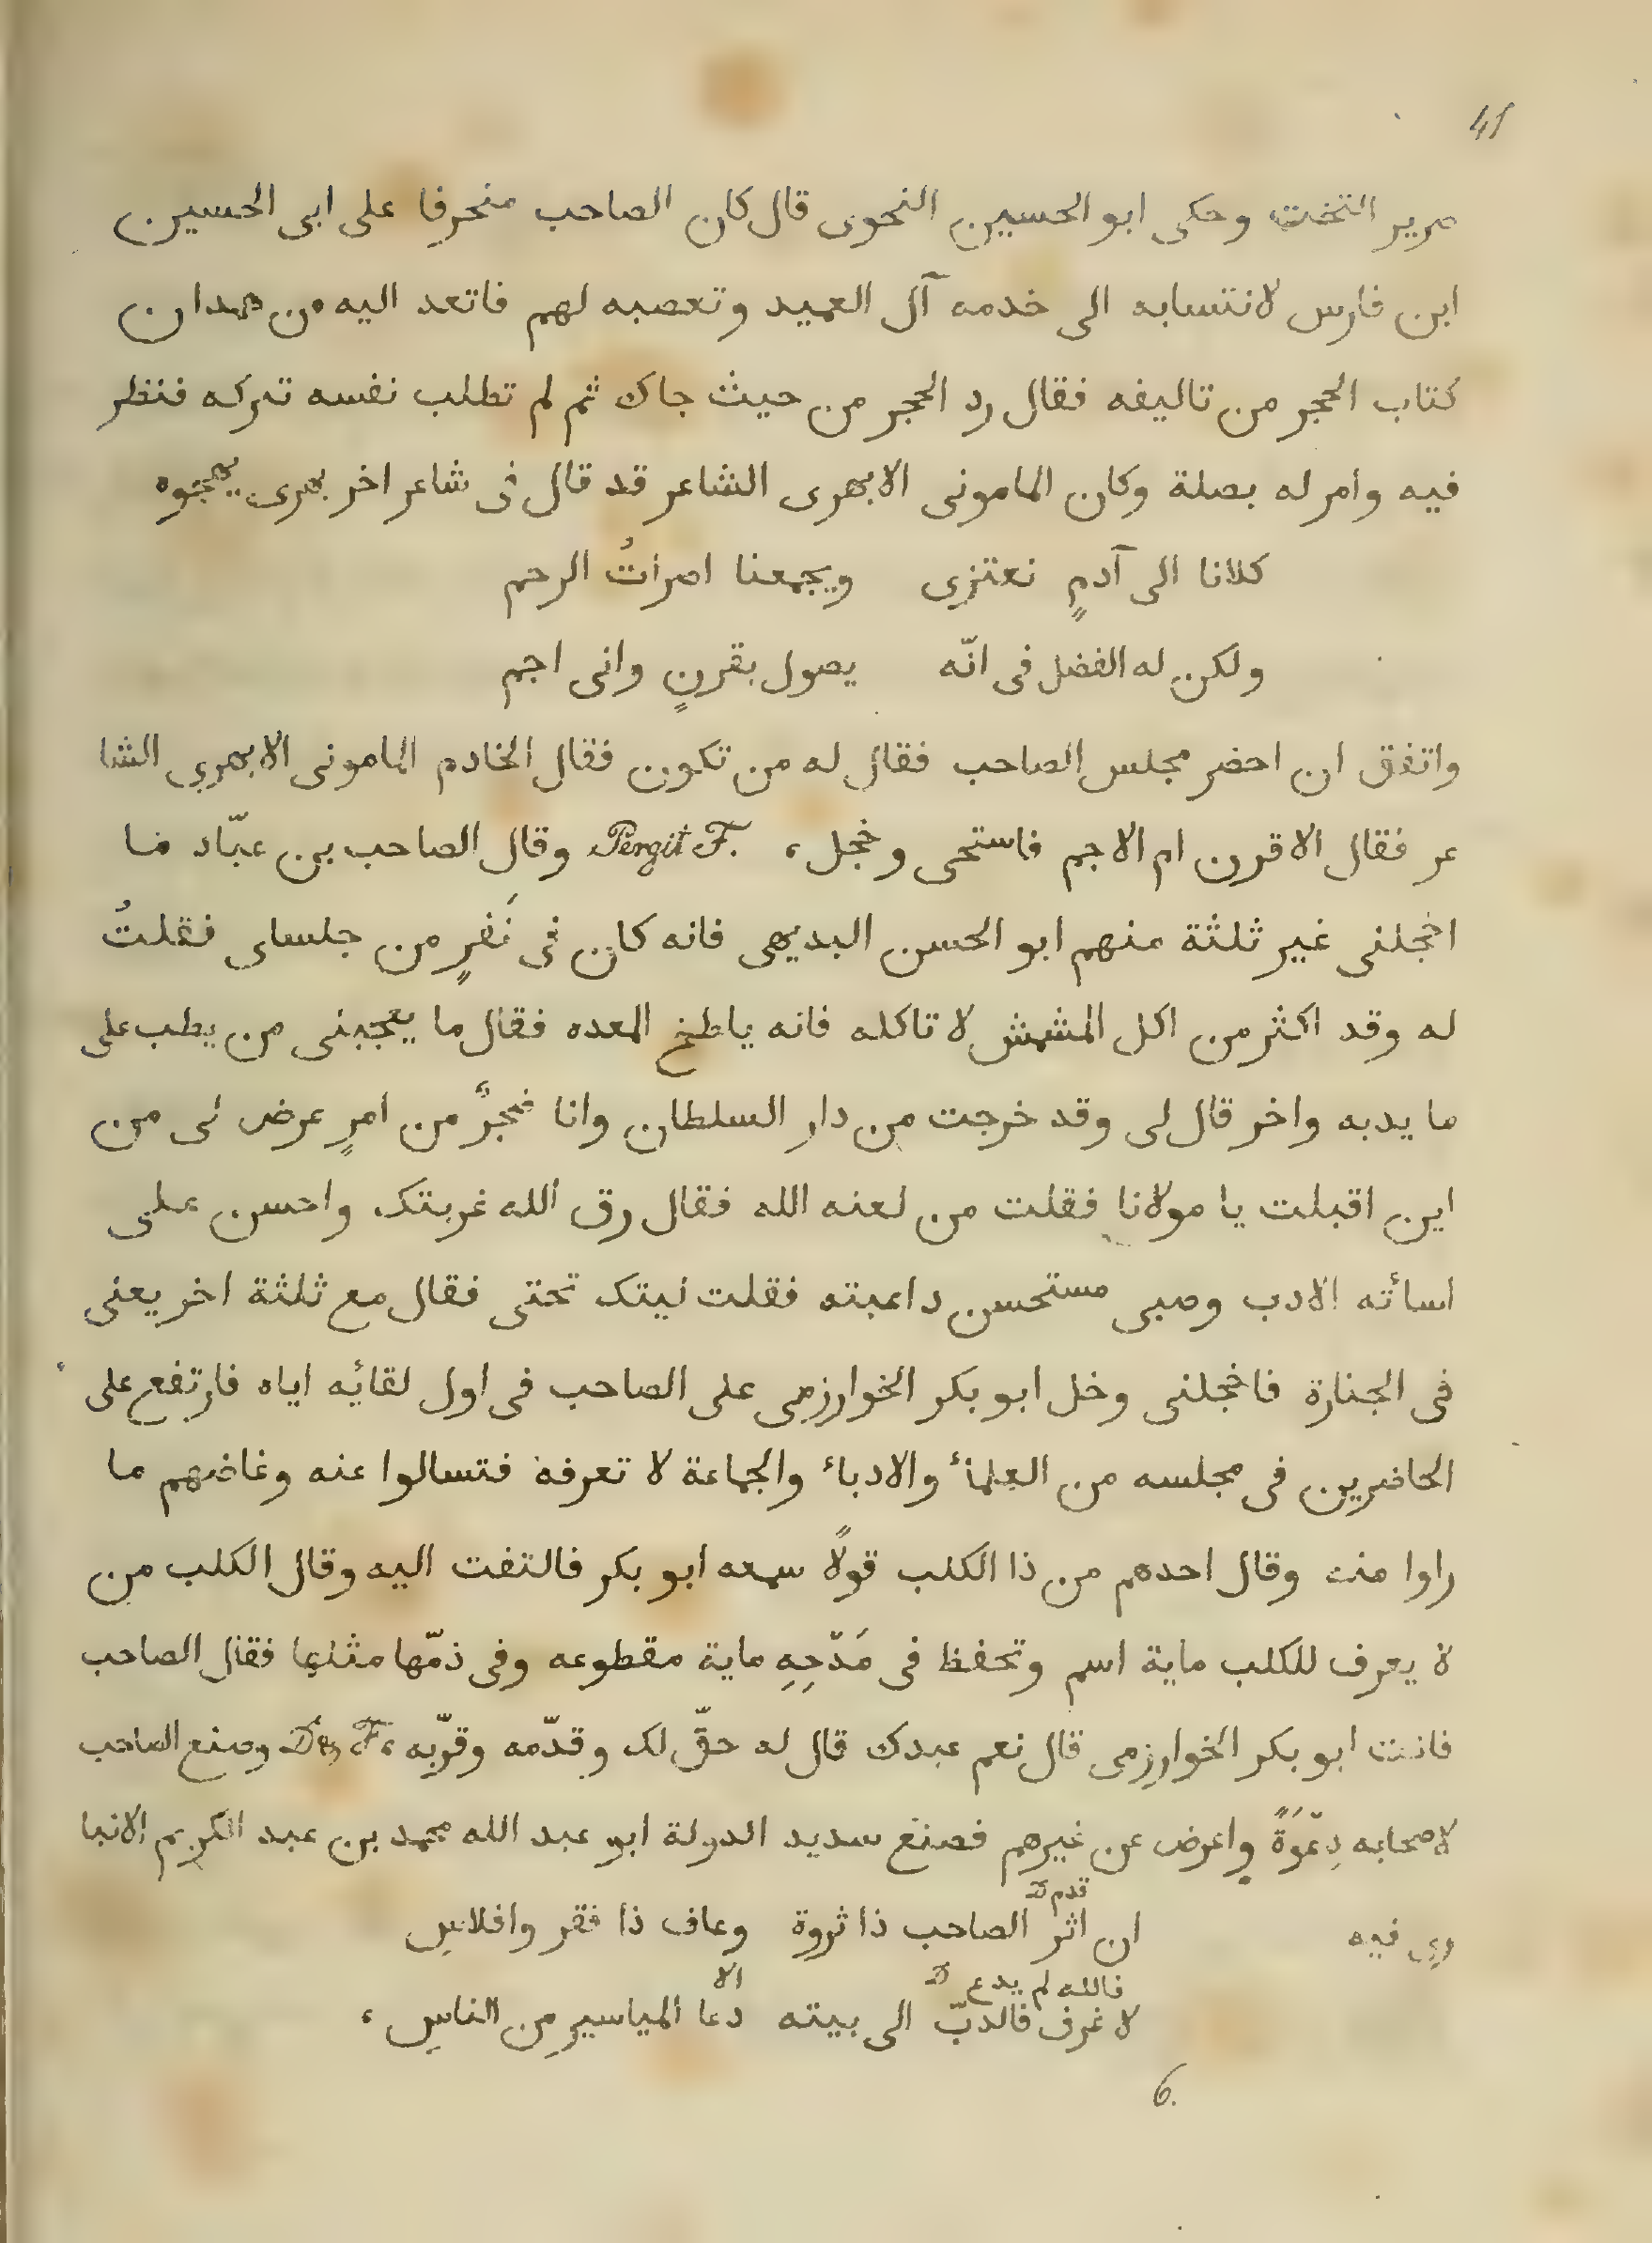 41
صرير التخت وحكى ابو الحسين النحوى قال كان الصاحب منحرفا على ابى الحسين
ابن فارس لانتسابه الى خدمه آل العميد وتعصبه لهم فاتعد اليه من همدان
كتاب الحجر من تاليفه فقال رد الحجر من حيث جاك ثم لم تطلب نفسه تركه فنظر
فيه وامر له بصلة وكان المامونى الابهرى الشاعر قد قال فى شاعر اخر بهرى يهجوه
كلانا الى آدمٍ نعتزى ويجمعنا امراتُ الرحم
ولكن له الفضل فى انّه يصول بقرنٍ وانى اجم
واتفق ان احضر مجلس الصاحب فقال له من تكون فقال الخادم المامونى الابهرى الشا
عر فقال الاقرن ام الاجم فاستحى وخجل، Pergit F. وقال الصاحب بن عبّاد ما
اخجلنى غير ثلثة منهم ابو الحسن البديهى فانه كان فى نَفرٍ من جلساى فقلتُ
له وقد اكثر من اكل المشمش لا تاكله فانه ياطخ المعده فقال ما يعجبنى من يطب على
ما يدبه واخر قال لى وقد خرجت من دار السلطان وانا ضجرٌ من امرٍ عرض لى من
اين اقبلت يا مولانا فقلت من لعنه الله فقال رق الله غربتك واحسن على
اسأته الادب وصبى مستحسن داعبته فقلت نيتك تحتى فقال مع ثلثة اخر يعنى
فى الجنازة فاخجلنى وخل ابو بكر الخوارزمى على الصاحب فى اول لقائه اياه فارتفع على
الحاضرين فى مجلسه من العلمأ والادبأ والجماعة لا تعرفه فتسالوا عنه وغاضهم ما
راوا منه وقال احدهم من ذا الكلب قولاً سمعه ابو بكر فالتفت اليه وقال الكلب من
لا يعرف للكلب ماية اسم وتحفظ فى مَدْحِهِ ماية مقطوعه وفى ذمّها مثلها فقال الصاحب
فانت ابو بكر الخوارزمى قال نعم عبدك قال له حقّ لك وقدّمه وقرّبه، F. وصنع الصاحب
لاصحابه دِعْوَةً واعرض عن غيرهم فصنع سديد الدولة ابو عبد الله محمد بن عبد الكريم الانبا
قدم
رى فيه ان اثر الصاحب ذا ثروة وعاف ذا فقر وافلاسِ
فالله لم يدع الا
لا غرف فالدبّ الى بيته دعا المياسير من الناسِ،
6.